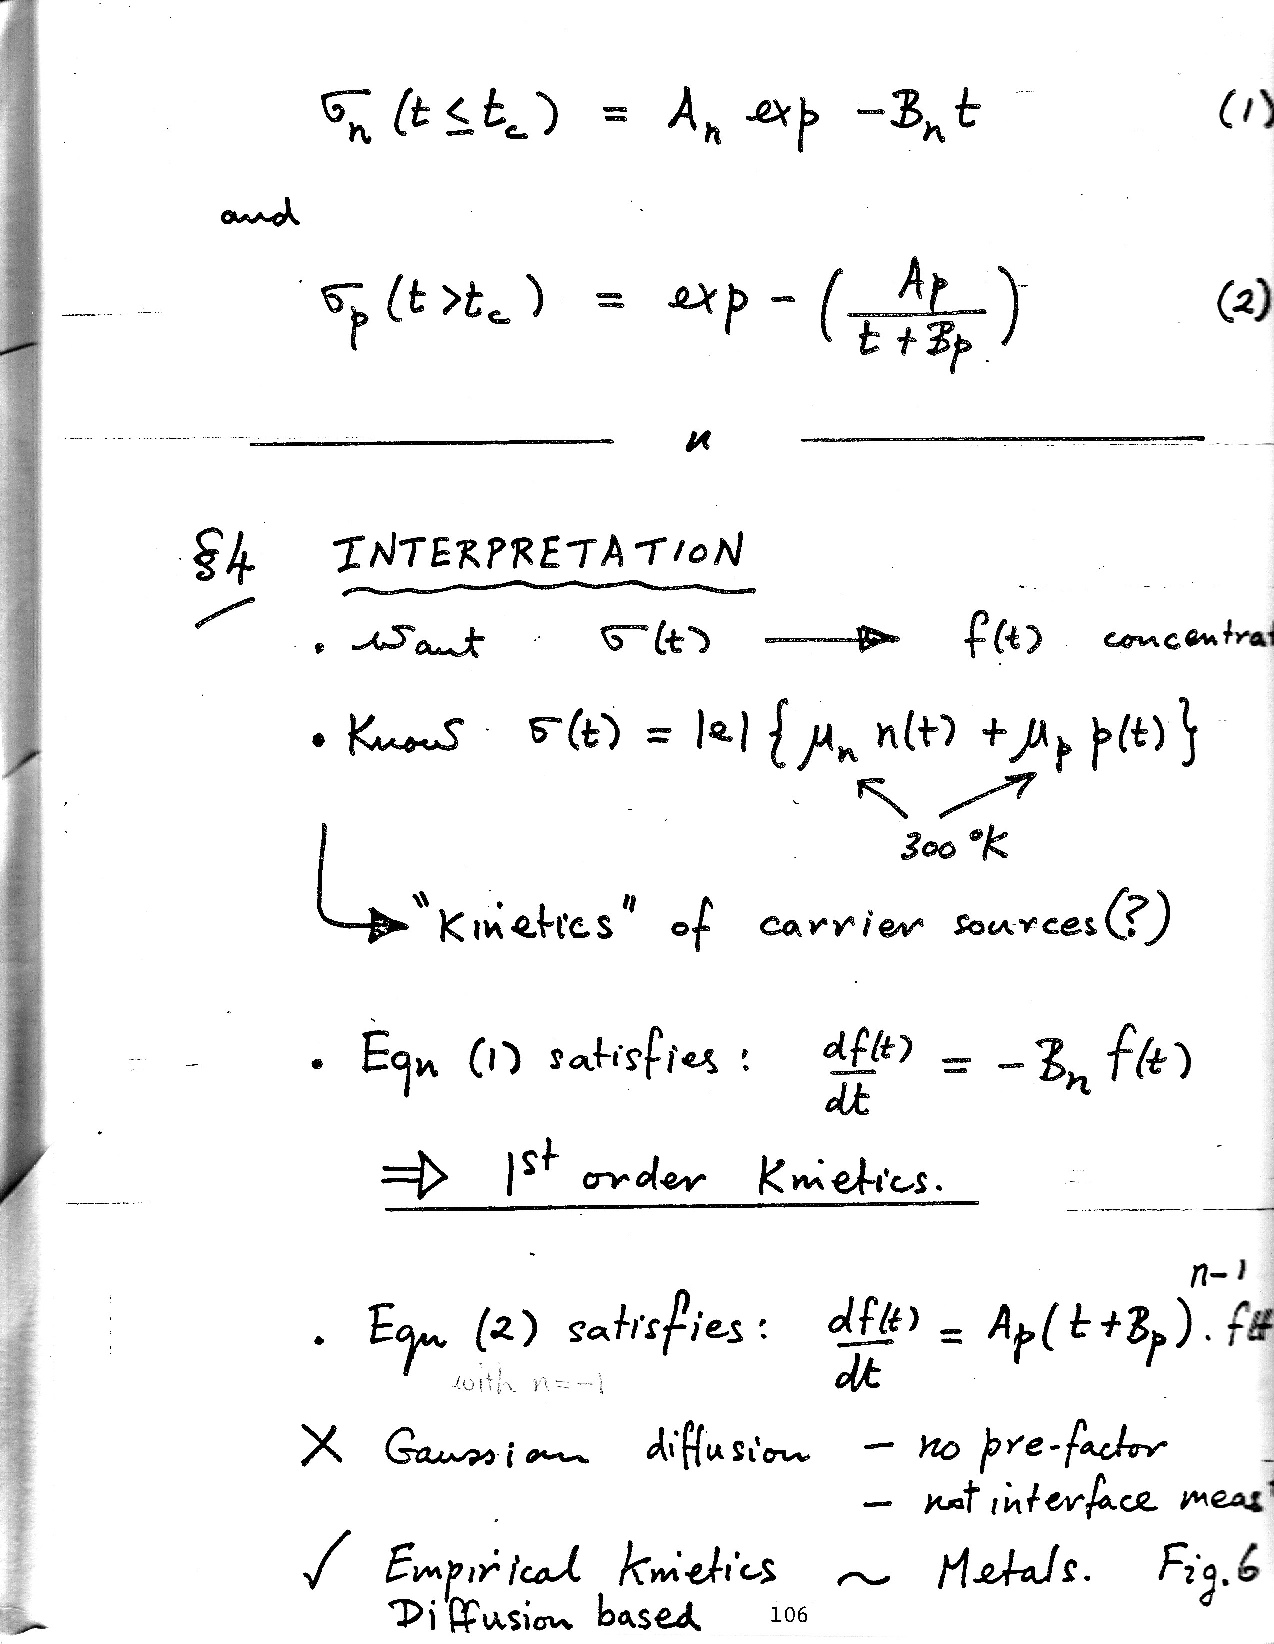 σn (t ≤ tc) = An exp -Bn t (1)
and
σp (t > tc) = exp - (Ap / (t + Bp)) (2)
n
§4 INTERPRETATION
• Want σ(t) → f(t) concentrat
• Know σ(t) = |e| { μn n(t) + μp p(t) }
300 °K
"Kinetics" of carrier sources (?)
• Eqn (1) satisfies: df(t)/dt = -Bn f(t)
⇒ 1st order Kinetics.
• Eqn (2) satisfies: df(t)/dt = Ap (t + Bp)^(n-1) . f(t
with n=-1
X Gaussian diffusion – no pre-factor
– not interface meas
✓ Empirical Kinetics ~ Metals. Fig. 6
Diffusion based
106